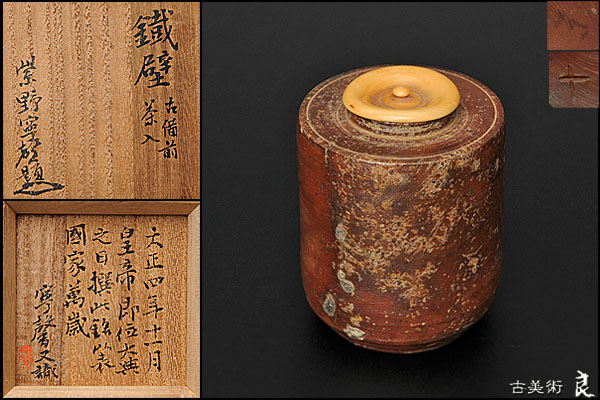 鐵壁
古備前
茶入
紫野寧馨題
大正四年十一月
皇帝即位大典
之日撰此銘以表
國家萬歳
寧馨又識
古美術 良